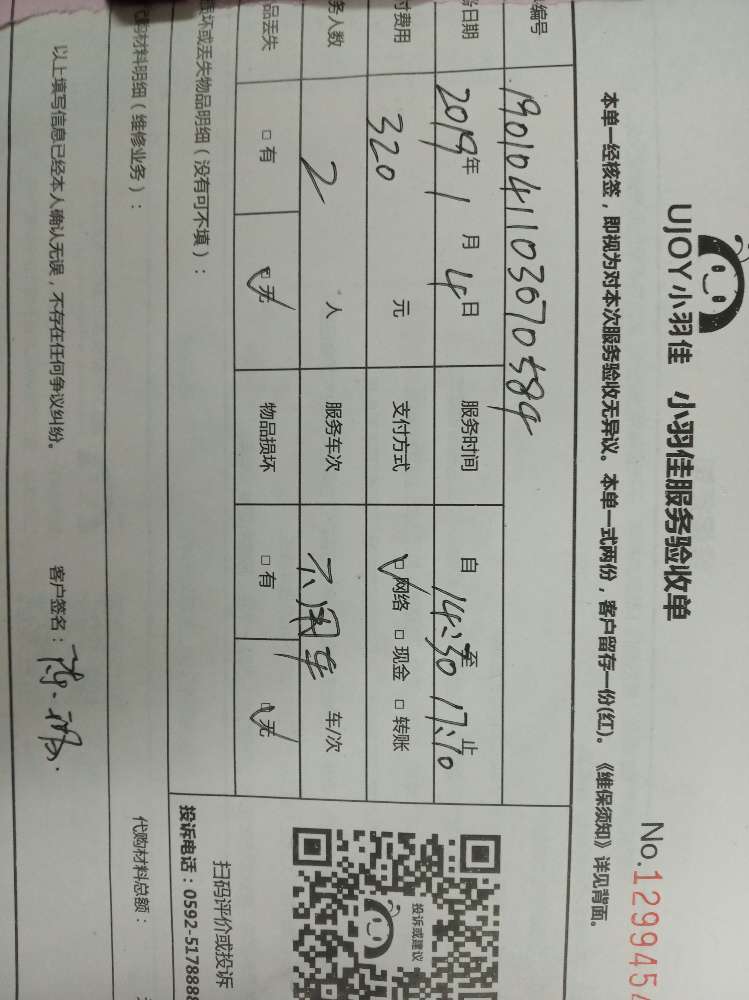 UJOY小羽佳 小羽佳服务验收单
No.1299454
本单一经核签，即视为对本次服务验收无异议。本单一式两份，客户留存一份(红)。《维保须知》详见背面。
编号 190104110367058
日期 2019年1月4日 服务时间 自14:30至17:10止
付费用 320 元 支付方式 网络 □ 现金 □ 转账
务人数 2 人 服务车次 不用车 车/次
品丢失 □ 有 □ 无 物品损坏 □ 有 □ 无
损坏或丢失物品明细（没有可不填）：
投诉或建议
扫码评价或投诉
投诉电话：0592-5178888
代购材料明细（维修业务）：
代购材料总额：
以上填写信息已经本人确认无误，不存在任何争议纠纷。 客户签名：